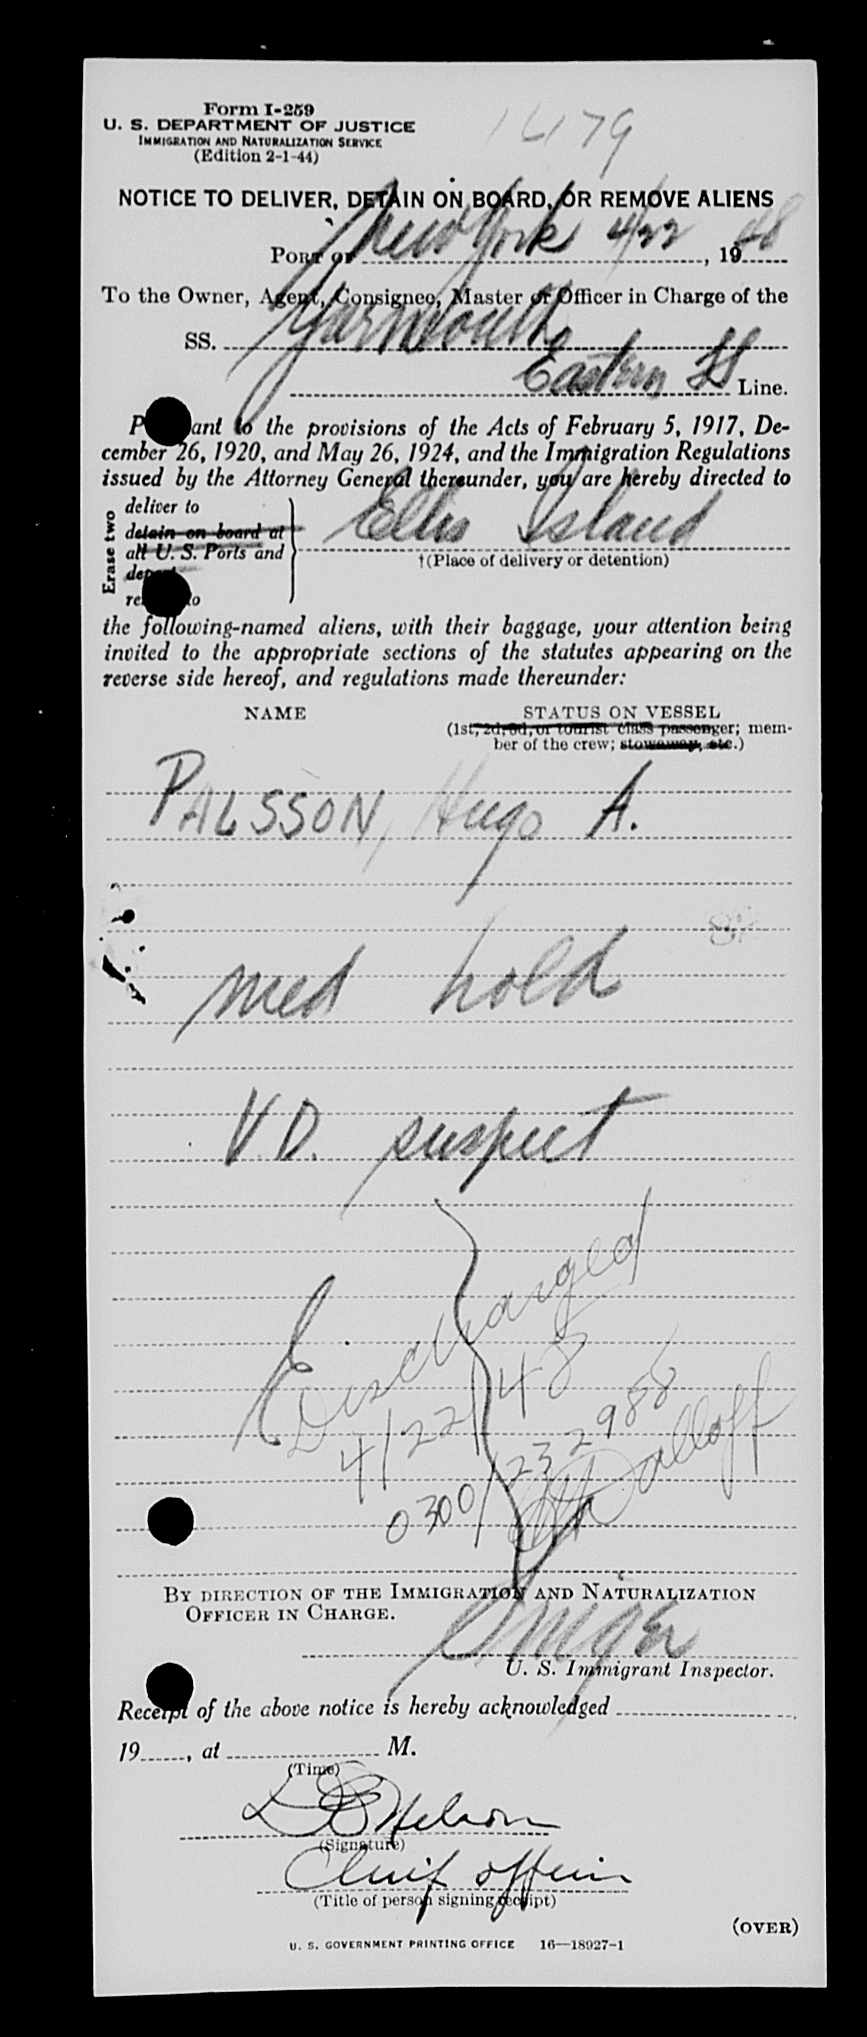 Form I-259
U. S. DEPARTMENT OF JUSTICE
IMMIGRATION AND NATURALIZATION SERVICE
(Edition 2-1-44)
16179
NOTICE TO DELIVER, DETAIN ON BOARD, OR REMOVE ALIENS
PORT OF New York 4/22, 1948
To the Owner, Agent, Consignee, Master or Officer in Charge of the
SS. Yarmouth
Eastern SS Line.
P ant to the provisions of the Acts of February 5, 1917, De-
cember 26, 1920, and May 26, 1924, and the Immigration Regulations
issued by the Attorney General thereunder, you are hereby directed to
Erase two
deliver to
detain on board at
all U. S. Ports and
dep
re to
Ellis Island
†(Place of delivery or detention)
the following-named aliens, with their baggage, your attention being
invited to the appropriate sections of the statutes appearing on the
reverse side hereof, and regulations made thereunder:
NAME STATUS ON VESSEL
(1st, 2d, 3d, or tourist class passenger; mem-
ber of the crew; stowaway, etc.)
PALSSON, Hugo A.
med hold
V.D. suspect
Discharged
4/22/48
0300/232988
BY DIRECTION OF THE IMMIGRATION AND NATURALIZATION
OFFICER IN CHARGE.
U. S. Immigrant Inspector.
Receipt of the above notice is hereby acknowledged
19 , at M.
(Time)
Nelson
(Signature)
Chief officer
(Title of person signing receipt)
(OVER)
U. S. GOVERNMENT PRINTING OFFICE 16—18927-1